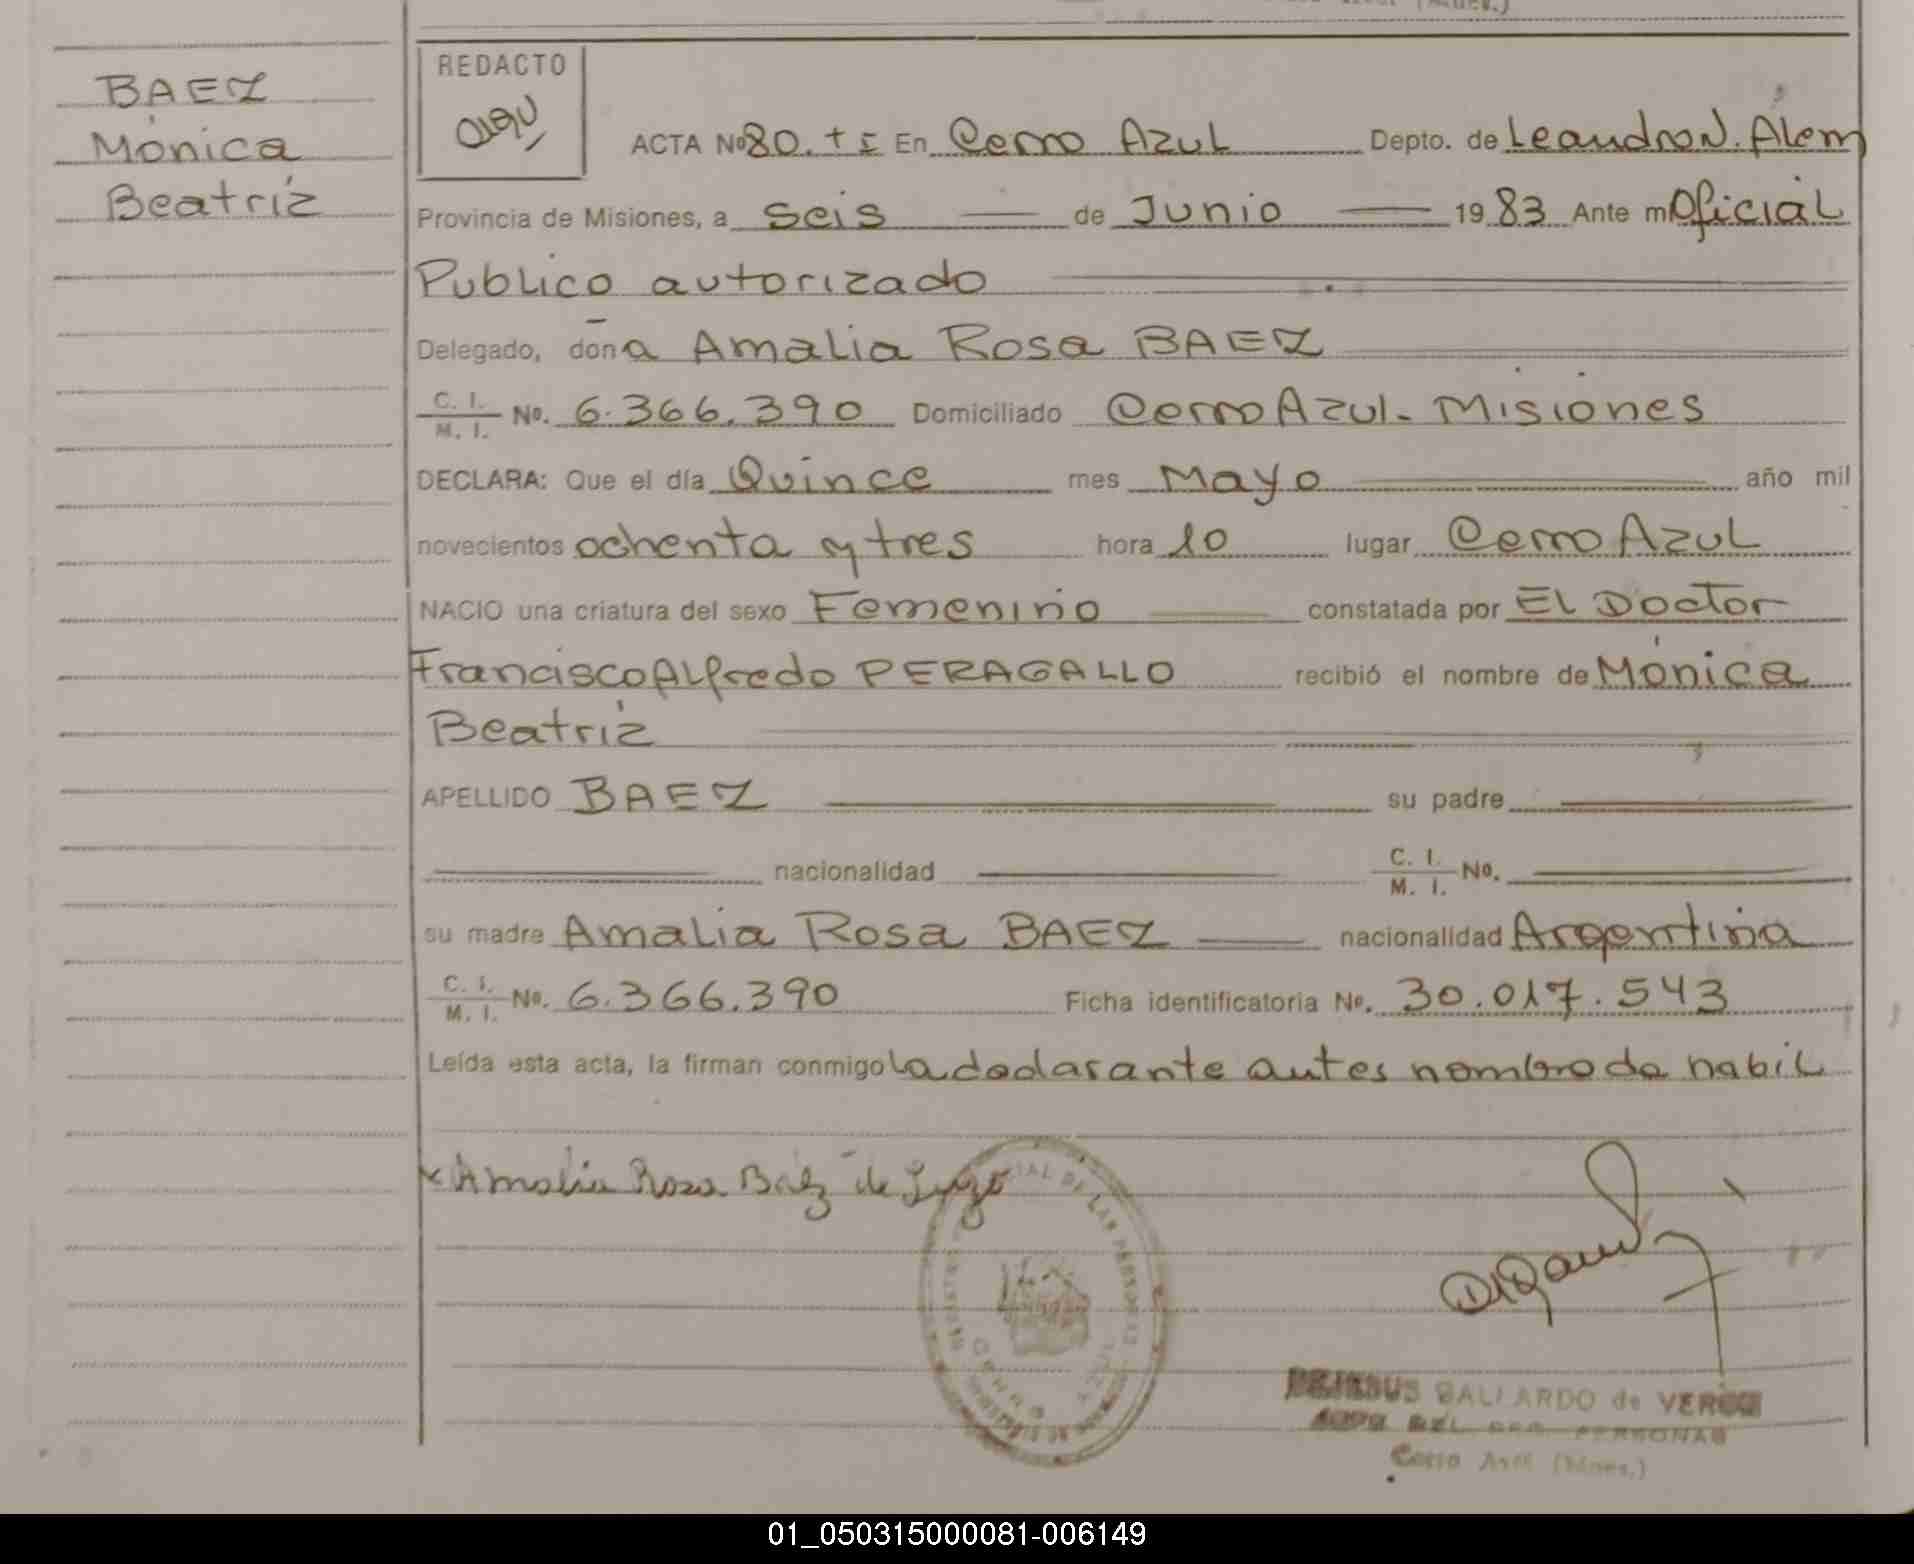 BAEZ
Mónica
Beatríz
REDACTO
ACTA Nº 80. t I En Cerro Azul Depto. de Leandro N. Alem
Provincia de Misiones, a seis de Junio 1983 Ante mí Oficial
Publico autorizado
Delegado, doña Amalia Rosa BAEZ
C. I. / M. I. No. 6.366.390 Domiciliado Cerro Azul - Misiones
DECLARA: Que el día Quince mes Mayo año mil
novecientos ochenta y tres hora 10 lugar Cerro Azul
NACIO una criatura del sexo Femenino constatada por El Doctor
Francisco Alfredo PERAGALLO recibió el nombre de Mónica
Beatríz
APELLIDO BAEZ su padre
nacionalidad C. I. / M. I. No.
su madre Amalia Rosa BAEZ nacionalidad Argentina
C. I. / M. I. No. 6.366.390 Ficha identificatoria No. 30.017.543
Leída esta acta, la firman conmigo la declarante antes nombrada habil
x Amalia Rosa Báez de Lugo
DE LAS PERSONAS
GALLARDO de
PERSONAS
Cerro Azul (Mnes.)
01_050315000081-006149